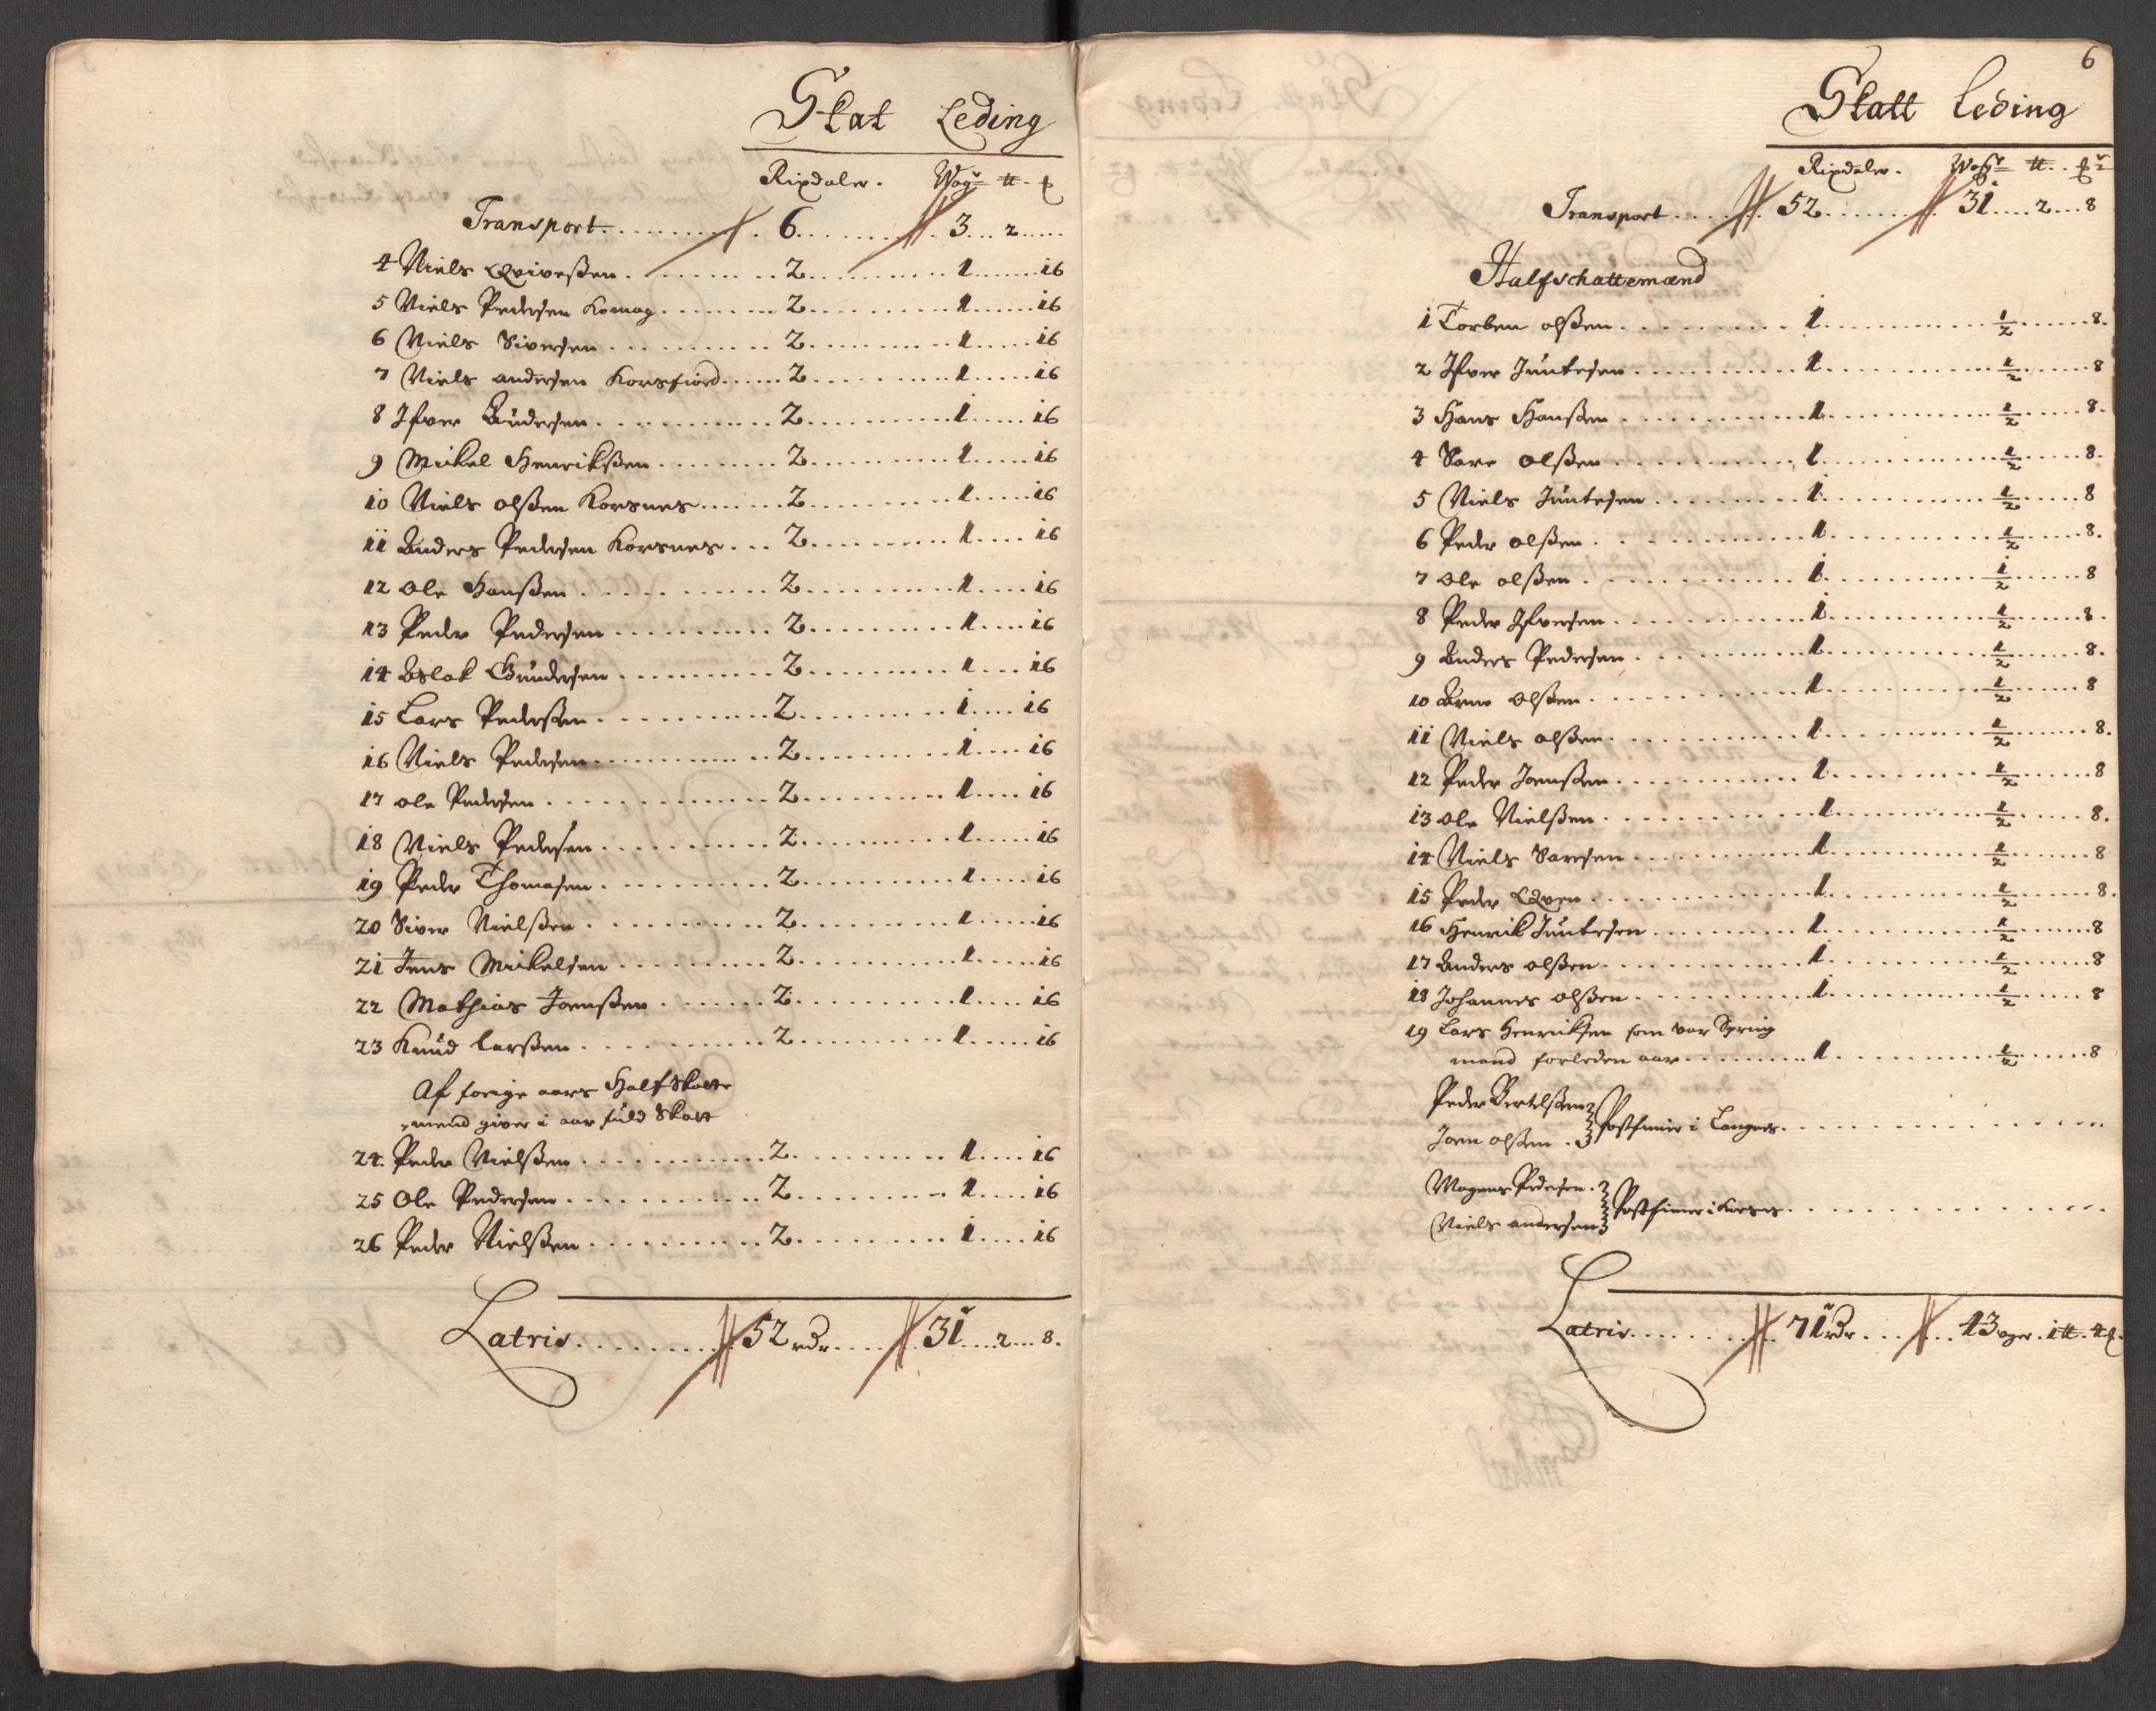 Skat Leding
Rixdaler. Wogr ℔. ꝑ
Transport........... 6......... 3... 2.....
4 Niels Qviveßen........... 2........... 1....... 16
5 Niels Pedersen Komag........ 2.......... 1...... 16
6 Niels Siversen........... 2.......... 1...... 16
7 Niels andersen Korsfiord...... 2.......... 1..... 16
8 Ifver Gundersen............ 2.......... 1..... 16
9 Mickel Henrikßen......... 2.......... 1..... 16
10 Niels olßen Korsnes....... 2.......... 1..... 16
11 Anders Pedersen Korsnes... 2.......... 1.... 16
12 Ole Hanßen........... 2.......... 1.... 16
13 Peder Pedersen........... 2.......... 1.... 16
14 Aslak Gundersen.......... 2.......... 1.... 16
15 Lars Pederßen........... 2.......... 1.... 16
16 Niels Pedersen............ 2.......... 1.... 16
17 ole Pedersen............. 2.......... 1.... 16
18 Niels Pedersen........... 2.......... 1..... 16
19 Peder Thomasen.......... 2.......... 1.... 16
20 Siver Nielßen........... 2.......... 1..... 16
21 Jens Mickelsen.......... 2.......... 1..... 16
22 Mathias Joenßen....... 2.......... 1.... 16
23 Knud larßen........... 2.......... 1..... 16
Af forige aars Half Skatte
mend giver i aar fuld Skatt
24. Peder Nielßen............ 2.......... 1.... 16
25 Ole Pedersen............ 2.......... 1.... 16
26 Peder Nielßen........... 2.......... 1.... 16
Latris.......... 52 rdr..... 31.... 2... 8.
6
Skatt leding
Rixdaler. Wogr ℔. ꝑr
Transport..... 52........ 31.... 2... 8
Halfschattemænd
1 Torben olßen.......... 1............ 1/2...... 8.
2 Ifver Juntesen........... 1............ 1/2...... 8
3 Hans Hanßen........... 1............ 1/2..... 8.
4 Sare olßen........... 1............ 1/2..... 8.
5 Niels Juntesen......... 1............ 1/2..... 8
6 Peder olßen............ 1............ 1/2..... 8.
7 Ole olßen............ 1............ 1/2...... 8
8 Peder Ifversen.......... 1............ 1/2..... 8.
9 Anders Pedersen.......... 1............ 1/2..... 8.
10 Arne olßen........... 1............ 1/2...... 8
11 Niels olßen........... 1............ 1/2....... 8.
12 Peder Joenßen........... 1............ 1/2...... 8
13 Ole Nielßen........... 1............ 1/2..... 8.
14 Niels Saresen.......... 1............ 1/2....... 8
15 Peder Qven............ 1............ 1/2....... 8.
16 Henrik Juntesen.......... 1............ 1/2....... 8
17 Anders olßen............ 1............ 1/2...... 8
18 Johannes olßen.......... 1............ 1/2...... 8
19 Lars Henriksen som var Spring
mand forleden aar......... 1............ 1/2...... 8
Peder Bertelßen
Joen olßen. Postfinner i Langnes...............
Mogens Pedersen.
Niels andersen Postfinner i Korsnes...............
Latris....... 71 rdr.... 43 wger. 1 ℔. 4 ꝑ.